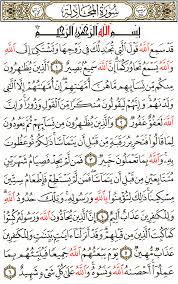 سُورَةُ المُجَادلة
بِسْمِ ٱللَّهِ ٱلرَّحْمَٰنِ ٱلرَّحِيمِ
قَدْ سَمِعَ ٱللَّهُ قَوْلَ ٱلَّتِى تُجَٰدِلُكَ فِى زَوْجِهَا وَتَشْتَكِىٓ إِلَى ٱللَّهِ
وَٱللَّهُ يَسْمَعُ تَحَاوُرَكُمَآ إِنَّ ٱللَّهَ سَمِيعٌۢ بَصِيرٌ ١ ٱلَّذِينَ يُظَٰهِرُونَ
مِنكُم مِّن نِّسَآئِهِم مَّا هُنَّ أُمَّهَٰتِهِمْ إِنْ أُمَّهَٰتُهُمْ إِلَّا ٱلَّٰٓـِٔى
وَلَدْنَهُمْ وَإِنَّهُمْ لَيَقُولُونَ مُنكَرًا مِّنَ ٱلْقَوْلِ وَزُورًا وَإِنَّ ٱللَّهَ
لَعَفُوٌّ غَفُورٌ ٢ وَٱلَّذِينَ يُظَٰهِرُونَ مِن نِّسَآئِهِمْ ثُمَّ يَعُودُونَ
لِمَا قَالُوا۟ فَتَحْرِيرُ رَقَبَةٍ مِّن قَبْلِ أَن يَتَمَآسَّا ذَٰلِكُمْ تُوعَظُونَ بِهِۦ
وَٱللَّهُ بِمَا تَعْمَلُونَ خَبِيرٌ ٣ فَمَن لَّمْ يَجِدْ فَصِيَامُ شَهْرَيْنِ
مُتَتَابِعَيْنِ مِن قَبْلِ أَن يَتَمَآسَّا فَمَن لَّمْ يَسْتَطِعْ فَإِطْعَامُ سِتِّينَ
مِسْكِينًا ذَٰلِكَ لِتُؤْمِنُوا۟ بِٱللَّهِ وَرَسُولِهِۦ وَتِلْكَ حُدُودُ ٱللَّهِ
وَلِلْكَٰفِرِينَ عَذَابٌ أَلِيمٌ ٤ إِنَّ ٱلَّذِينَ يُحَآدُّونَ ٱللَّهَ وَرَسُولَهُۥ كُبِتُوا۟
كَمَا كُبِتَ ٱلَّذِينَ مِن قَبْلِهِمْ وَقَدْ أَنزَلْنَآ ءَايَٰتٍۭ بَيِّنَٰتٍ وَلِلْكَٰفِرِينَ
عَذَابٌ مُّهِينٌ ٥ يَوْمَ يَبْعَثُهُمُ ٱللَّهُ جَمِيعًا فَيُنَبِّئُهُم بِمَا
عَمِلُوٓا۟ أَحْصَىٰهُ ٱللَّهُ وَنَسُوهُ وَٱللَّهُ عَلَىٰ كُلِّ شَىْءٍ شَهِيدٌ ٦